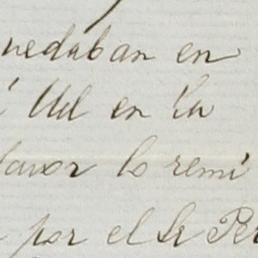 quedaban en
Ud en su
favor lo remi
por el Sr Per